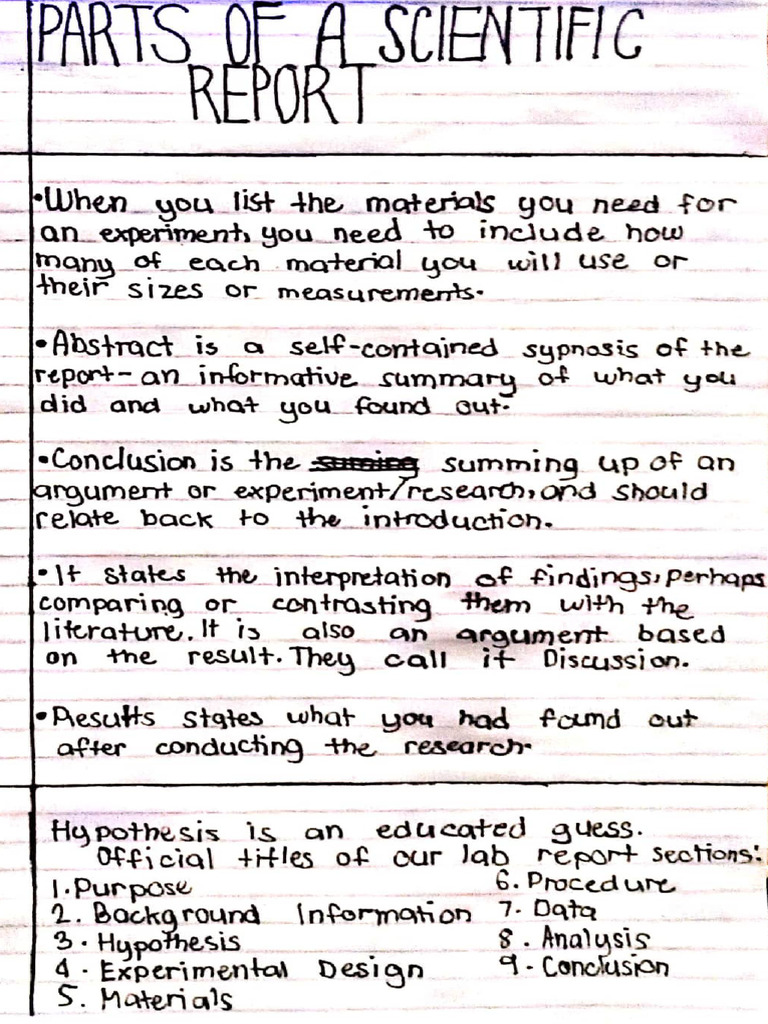 PARTS OF A SCIENTIFIC
REPORT
•When you list the materials you need for
an experiment, you need to include how
many of each material you will use or
their sizes or measurements.
•Abstract is a self-contained sypnosis of the
report-an informative summary of what you
did and what you found out.
•Conclusion is the suming summing up of an
argument or experiment/research, and should
relate back to the introduction.
•It states the interpretation of findings, perhaps
comparing or contrasting them with the
literature. It is also an argument based
on the result. They call it Discussion.
•Results states what you had found out
after conducting the research.
Hypothesis is an educated guess.
Official titles of our lab report sections:
1. Purpose
2. Background Information
3. Hypothesis
4. Experimental Design
5. Materials
6. Procedure
7. Data
8. Analysis
9. Conclusion